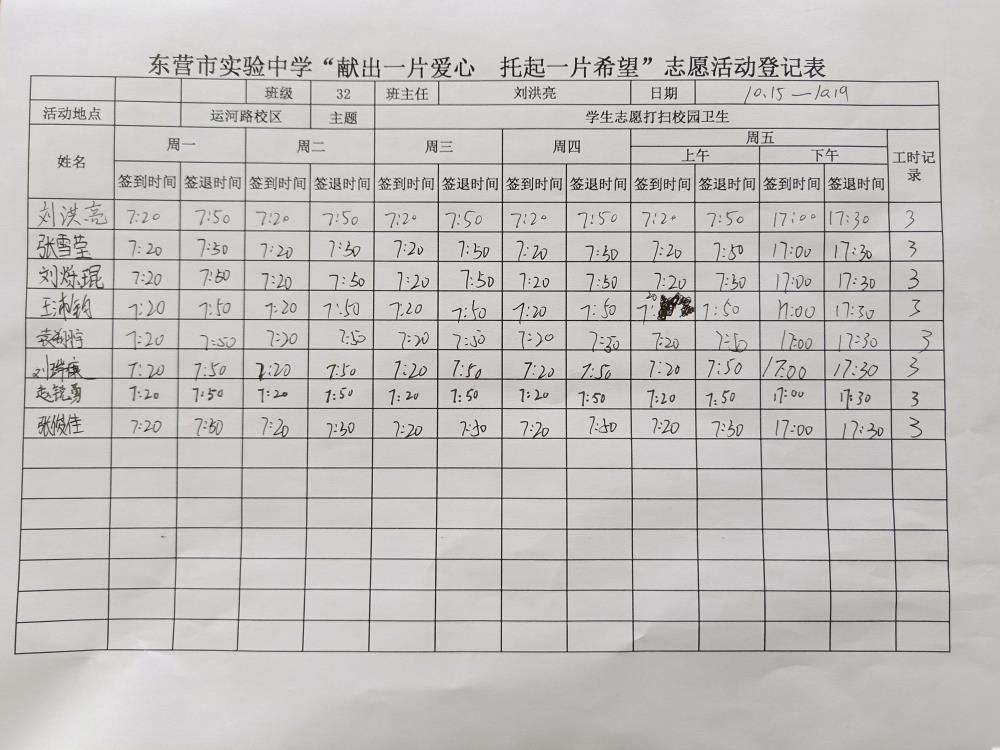 东营市实验中学“献出一片爱心 托起一片希望”志愿活动登记表
班级 32 班主任 刘洪亮 日期 10.15—10.19
活动地点 运河路校区 主题 学生志愿打扫校园卫生
姓名 周一 周二 周三 周四 周五 工时记录
上午 下午
签到时间 签退时间 签到时间 签退时间 签到时间 签退时间 签到时间 签退时间 签到时间 签退时间 签到时间 签退时间
刘洪亮 7:20 7:50 7:20 7:50 7:20 7:50 7:20 7:50 7:20 7:50 17:00 17:30 3
张雪莹 7:20 7:50 7:20 7:50 7:20 7:50 7:20 7:50 7:20 7:50 17:00 17:30 3
刘烁琨 7:20 7:50 7:20 7:50 7:20 7:50 7:20 7:50 7:20 7:50 17:00 17:30 3
7:20 7:50 7:20 7:50 7:20 7:50 7:20 7:50 7:20 7:50 17:00 17:30 3
7:20 7:50 7:20 7:50 7:20 7:50 7:20 7:50 7:20 7:50 17:00 17:30 3
刘瑞康 7:20 7:50 7:20 7:50 7:20 7:50 7:20 7:50 7:20 7:50 17:00 17:30 3
赵锐勇 7:20 7:50 7:20 7:50 7:20 7:50 7:20 7:50 7:20 7:50 17:00 17:30 3
张俊佳 7:20 7:50 7:20 7:50 7:20 7:50 7:20 7:50 7:20 7:50 17:00 17:30 3